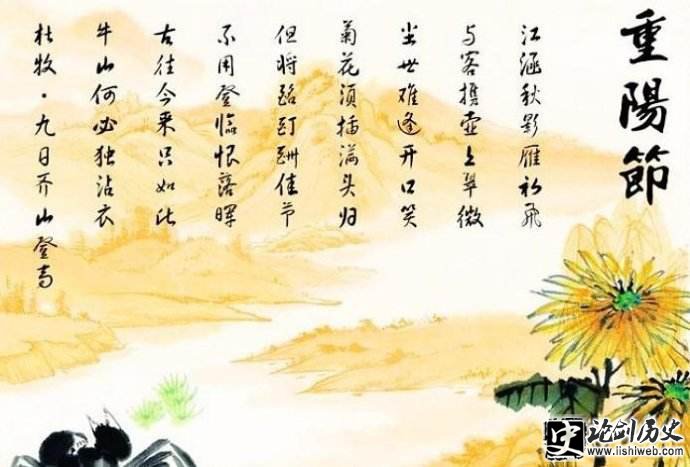 重陽節
江涵秋影雁初飞
与客携壶上翠微
尘世难逢开口笑
菊花须插满头归
但将酩酊酬佳节
不用登临恨落晖
古往今来只如此
牛山何必独沾衣
杜牧·九日齐山登高
史 论剑历史
www.lishiweb.com